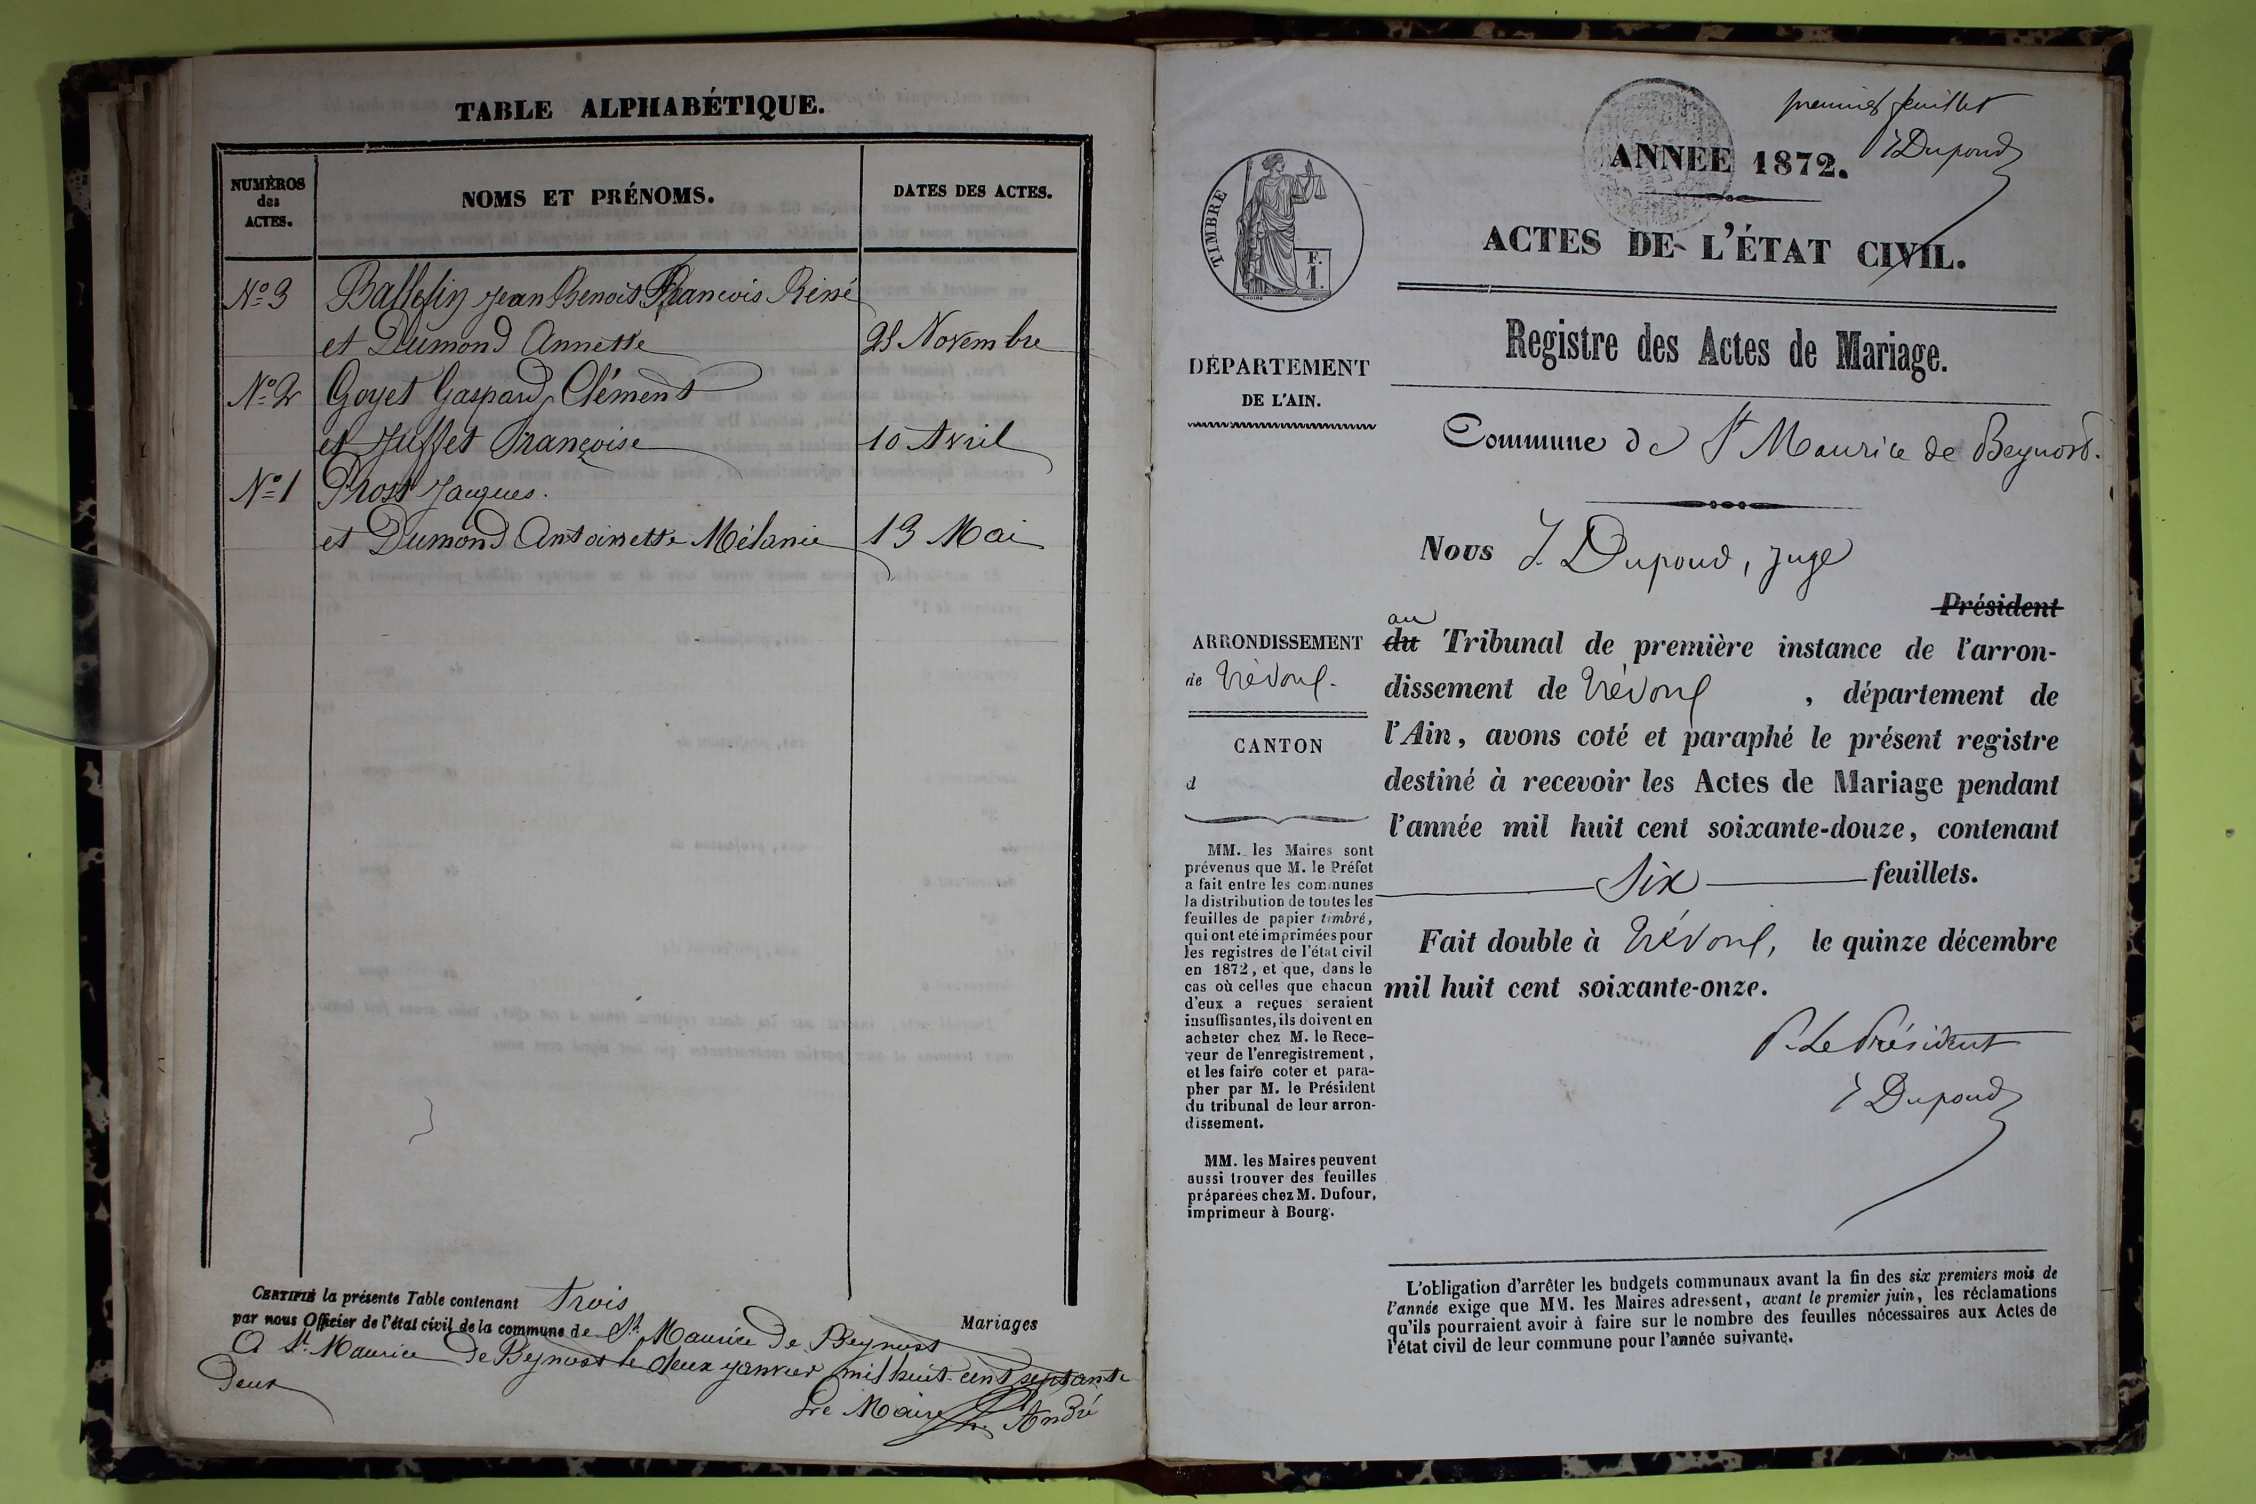 TABLE ALPHABÉTIQUE.
NUMÉROS
des
ACTES.
NOMS ET PRÉNOMS.
DATES DES ACTES.
No 3 Balleflin Jean Benoit François Réné
et Dumond Annette 25 Novembre
No 2 Goyet Gaspard, Clément
et Juffet Françoise 10 Avril
No 1 Prost Jacques.
et Dumond Antoinette Mélanie 13 Mai
CERTIFIÉ la présente Table contenant trois Mariages
par nous Officier de l'état civil de la commune de St. Maurice De Beynost
A St. Maurice De Beynost le deux janvier mil huit cent septante
Deux
Le Maire André
premier feuillet
J Dupoud
ANNÉE 1872.
ACTES DE L'ÉTAT CIVIL.
Registre des Actes de Mariage.
Commune de St Maurice de Beynost.
TIMBRE
F.
1.
DÉPARTEMENT
DE L'AIN.
ARRONDISSEMENT
de Trévoux.
CANTON
d
MM. les Maires sont
prévenus que M. le Préfet
a fait entre les communes
la distribution de toutes les
feuilles de papier timbré,
qui ont été imprimées pour
les registres de l'état civil
en 1872, et que, dans le
cas où celles que chacun
d'eux a reçues seraient
insuffisantes, ils doivent en
acheter chez M. le Rece-
veur de l'enregistrement,
et les faire coter et para-
pher par M. le Président
du tribunal de leur arron-
dissement.
MM. les Maires peuvent
aussi trouver des feuilles
préparées chez M. Dufour,
imprimeur à Bourg.
Nous J. Dupoud, juge
Président
au
du Tribunal de première instance de l'arron-
dissement de Trévoux, département de
l'Ain, avons coté et paraphé le présent registre
destiné à recevoir les Actes de Mariage pendant
l'année mil huit cent soixante-douze, contenant
Six feuillets.
Fait double à Trévoux, le quinze décembre
mil huit cent soixante-onze.
P. Le Président
J Dupoud
L'obligation d'arrêter les budgets communaux avant la fin des six premiers mois de
l'année exige que MM. les Maires adressent, avant le premier juin, les réclamations
qu'ils pourraient avoir à faire sur le nombre des feuilles nécessaires aux Actes de
l'état civil de leur commune pour l'année suivante.